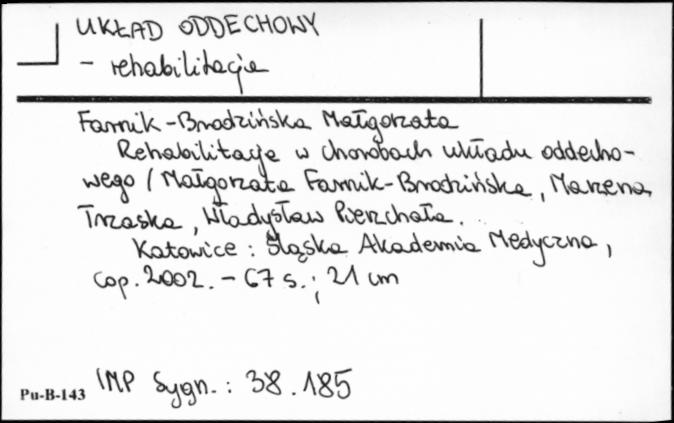 UKŁAD ODDECHOWY
- rehabilitacja
Farnik-Brodzińska Małgorzata
Rehabilitacja w chorobach układu oddecho-
wego / Małgorzata Farnik-Brodzińska, Marzena
Trzaska, Władysław Pierzchała.
Katowice : Śląska Akademia Medyczna,
cop. 2002. - 67 s. ; 21 cm
Pu-B-143 IMP Sygn. : 38.185